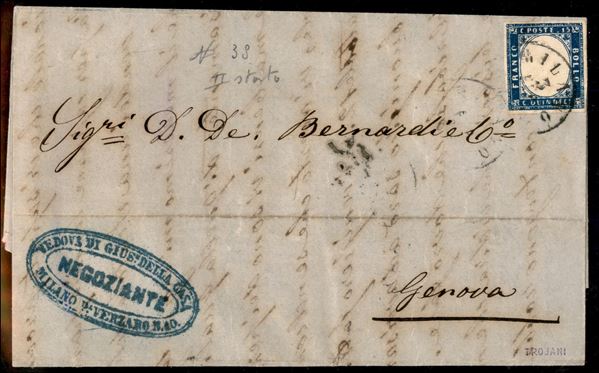 C. POSTE 15
FRANCO
BOLLO
C. QUINDICI
MILANO
N 38
II stato
Sig.ri D. De. Bernardi e Co.
VEDOVA DI GIUS. DELLA CASA
NEGOZIANTE
MILANO P. VERZARO N.
Genova
TROJANI